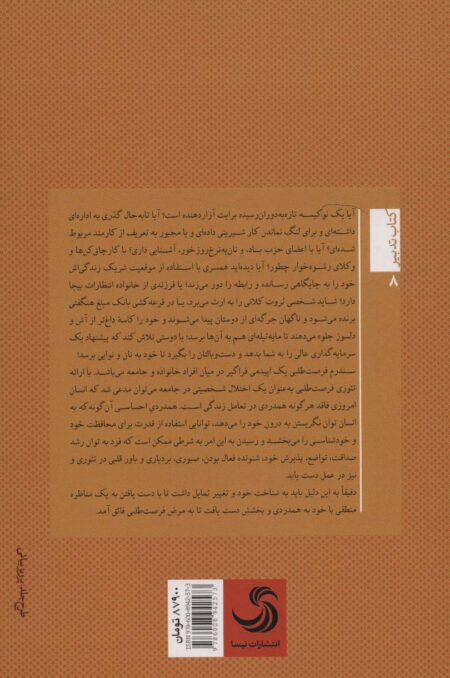 کتاب تدبیر
۸
آیا یک نوکیسه تازه‌به‌دوران‌رسیده برایت آزاردهنده است؛ آیا تابه‌حال گذری به اداره‌ای
داشته‌ای و برای لنگ نماندن کار شیرینی داده‌ای و یا مجبور به تعریف از کارمند مربوط
شده‌ای؛ آیا با اعضای حزب باد، و نان‌به‌نرخ‌روزخور، آشنایی داری؛ با کارچاق‌کن‌ها و
وکلای رشوه‌خوار چطور؛ آیا دیده‌اید همسری با استفاده از موقعیت شریک زندگی‌اش
خود را به جایگاهی رسانده و رابطه را دور می‌زند؛ یا فرزندی از خانواده انتظارات بیجا
دارد؛ شاید شخصی ثروت کلانی را به ارث می‌برد، یا در قرعه‌کشی بانک مبلغ هنگفتی
برنده می‌شود و ناگهان جرگه‌ای از دوستان پیدا می‌شوند و خود را کاسهٔ داغ‌تر از آش و
دلسوز جلوه می‌دهند تا مایه‌تیله‌ای هم به آن‌ها برسد؛ یا دوستی تلاش کند که پیشنهاد یک
سرمایه‌گذاری عالی را به شما بدهد و دست‌وبالتان را بگیرد تا خود به نان و نوایی برسد؛
سندرم فرصت‌طلبی یک اپیدمی فراگیر در میان افراد خانواده و جامعه می‌باشد. با ارائه
تئوری فرصت‌طلبی به‌عنوان یک اختلال شخصیتی در جامعه می‌توان مدعی شد که انسان
امروزی فاقد هرگونه همدردی در تعامل زندگی است. همدردی احساسی آن‌گونه که به
انسان توان نگریستن به درون خود را می‌دهد، توانایی استفاده از قدرت برای محافظت خود
و خودشناسی را می‌بخشد و رسیدن به این امر به شرطی ممکن است که فرد به توان رشد
صداقت، تواضع، پذیرش خود، شنونده فعال بودن، صبوری، بردباری و باور قلبی در تئوری و
نیز در عمل دست یابد.
دقیقاً به این دلیل باید به شناخت خود و تغییر تمایل داشت تا با دست یافتن به یک مناظره
منطقی با خود به همدردی و بخشش دست یافت تا به مرض فرصت‌طلبی فائق آمد.
طرح جلد: پرویز بیانی
۸۷۹۰۰ تومان
ISBN 978-600-8942-57-3
9786008942573
انتشارات تیسا